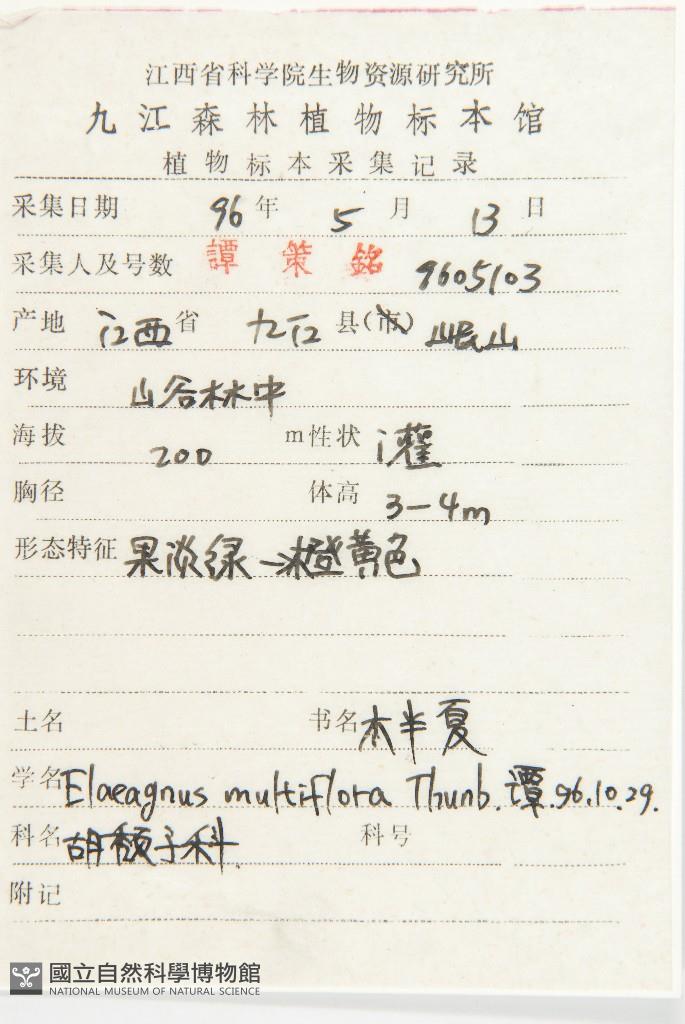 江西省科学院生物资源研究所
九江森林植物标本馆
植物标本采集记录
采集日期 96 年 5 月 13 日
采集人及号数 譚策銘 9605103
产地 江西 省 九江 县(市) 岷山
环境 山谷林中
海拔 200 m 性状 灌
胸径 体高 3-4m
形态特征 果淡绿→橙黄色
土名 书名 木半夏
学名 Elaeagnus multiflora Thunb. 谭.96.10.29.
科名 胡颓子科 科号
附记
國立自然科學博物館
NATIONAL MUSEUM OF NATURAL SCIENCE